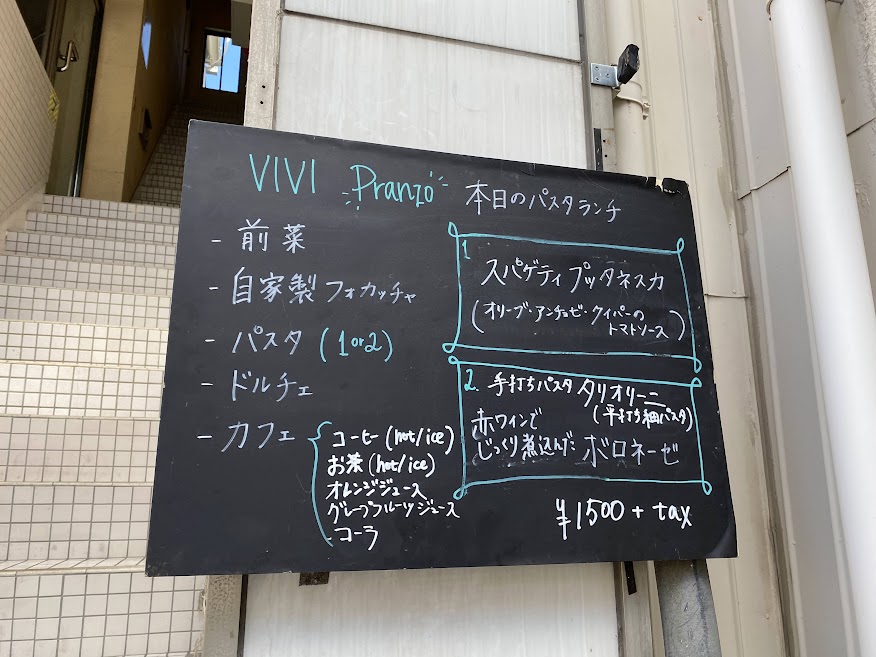 VIVI Pranzo
- 前菜
- 自家製フォカッチャ
- パスタ (1 or 2)
- ドルチェ
- カフェ
コーヒー (hot/ice)
お茶 (hot/ice)
オレンジジュース
グレープフルーツジュース
コーラ
本日のパスタランチ
1
スパゲティ プッタネスカ
(オリーブ・アンチョビ・ケイパーの
トマトソース)
2. 手打ちパスタ タリオリーニ
(平打ち細パスタ)
赤ワインで
じっくり煮込んだ ボロネーゼ
¥1500 + tax